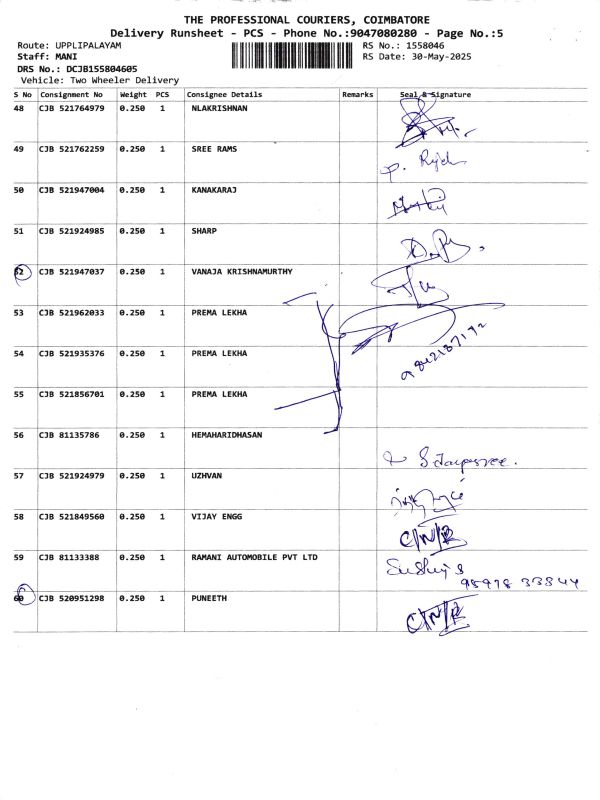 THE PROFESSIONAL COURIERS, COIMBATORE
Delivery Runsheet - PCS - Phone No.:9047080280 - Page No.:5
Route: UPPLIPALAYAM RS No.: 1558046
Staff: MANI RS Date: 30-May-2025
DRS No.: DCJB155804605
Vehicle: Two Wheeler Delivery
S No Consignment No Weight PCS Consignee Details Remarks Seal & Signature
48 CJB 521764979 0.250 1 NLAKRISHNAN
49 CJB 521762259 0.250 1 SREE RAMS
50 CJB 521947004 0.250 1 KANAKARAJ
51 CJB 521924985 0.250 1 SHARP
52 CJB 521947037 0.250 1 VANAJA KRISHNAMURTHY
53 CJB 521962033 0.250 1 PREMA LEKHA
54 CJB 521935376 0.250 1 PREMA LEKHA
9842187192
55 CJB 521856701 0.250 1 PREMA LEKHA
56 CJB 81135786 0.250 1 HEMAHARIDHASAN
57 CJB 521924979 0.250 1 UZHVAN
58 CJB 521849560 0.250 1 VIJAY ENGG
C/N/R
59 CJB 81133388 0.250 1 RAMANI AUTOMOBILE PVT LTD
98978 33344
60 CJB 520951298 0.250 1 PUNEETH
C/N/R